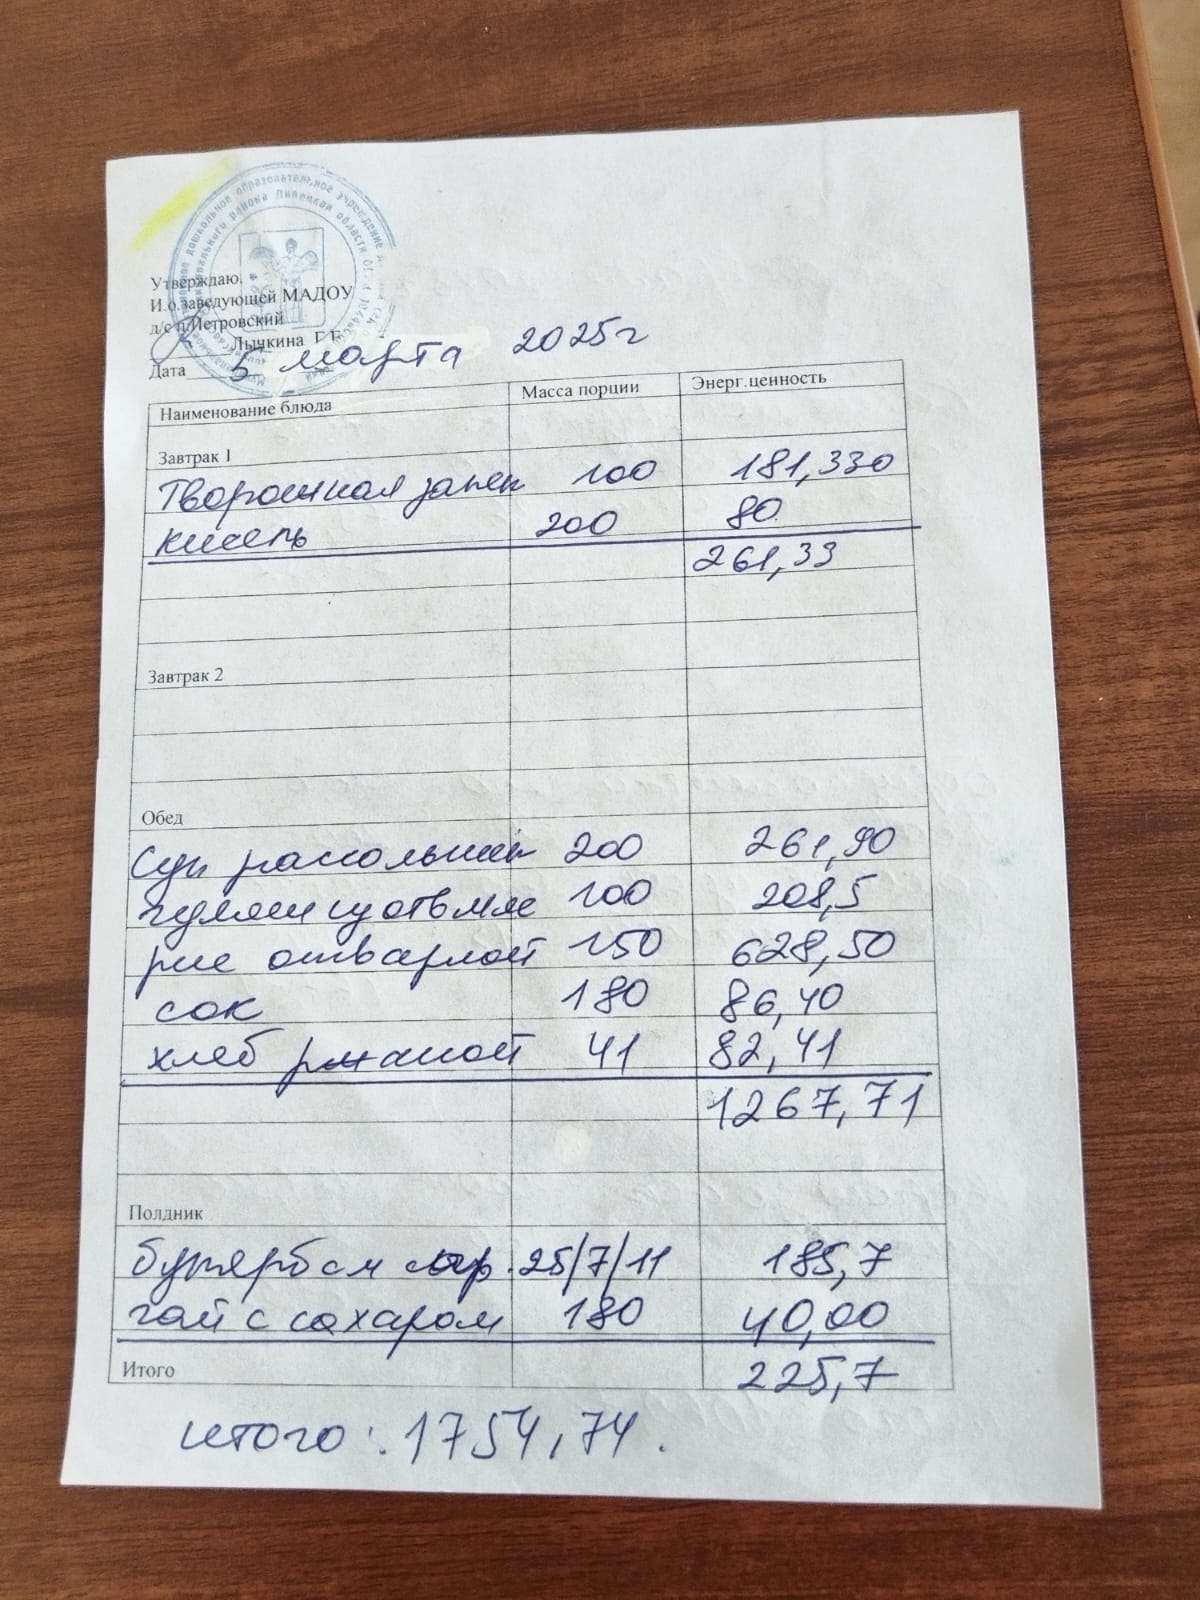 Утверждаю.
И.о.заведующей МАДОУ
д/с п.Петровский
Лычкина Г.Е.
Дата 5 марта 2025г
Наименование блюда Масса порции Энерг.ценность
Завтрак 1
Творожная запек 100 181,330
кисель 200 80
261,33
Завтрак 2
Обед
Суп рассольник 200 261,90
гуляш 100 208,5
рис отварной 150 628,50
сок 180 86,40
хлеб ржаной 41 82,41
1267,71
Полдник
бутерб с м сыр. 25/7/11 185,7
чай с сахаром 180 40,00
Итого 225,7
итого: 1754,74.